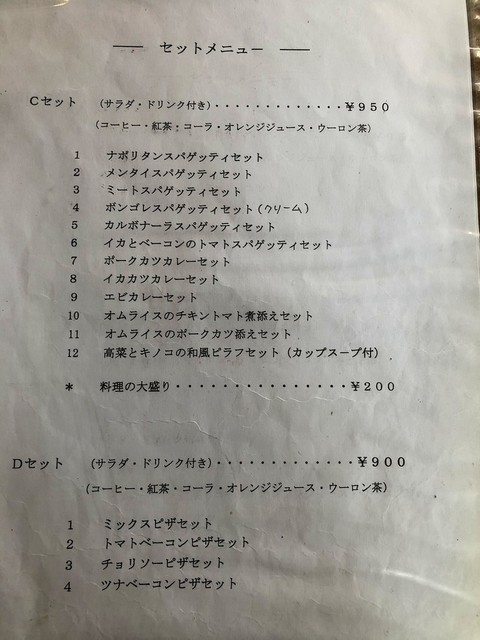 ── セットメニュー ──
Cセット （サラダ・ドリンク付き）・・・・・・・・・・・・・￥９５０
（コーヒー・紅茶・コーラ・オレンジジュース・ウーロン茶）
1 ナポリタンスパゲッティセット
2 メンタイスパゲッティセット
3 ミートスパゲッティセット
4 ボンゴレスパゲッティセット（クリーム）
5 カルボナーラスパゲッティセット
6 イカとベーコンのトマトスパゲッティセット
7 ポークカツカレーセット
8 イカカツカレーセット
9 エビカレーセット
10 オムライスのチキントマト煮添えセット
11 オムライスのポークカツ添えセット
12 高菜とキノコの和風ピラフセット（カップスープ付）
＊ 料理の大盛り・・・・・・・・・・・・・・・・￥２００
Dセット （サラダ・ドリンク付き）・・・・・・・・・・・・・・￥９００
（コーヒー・紅茶・コーラ・オレンジジュース・ウーロン茶）
1 ミックスピザセット
2 トマトベーコンピザセット
3 チョリソーピザセット
4 ツナベーコンピザセット